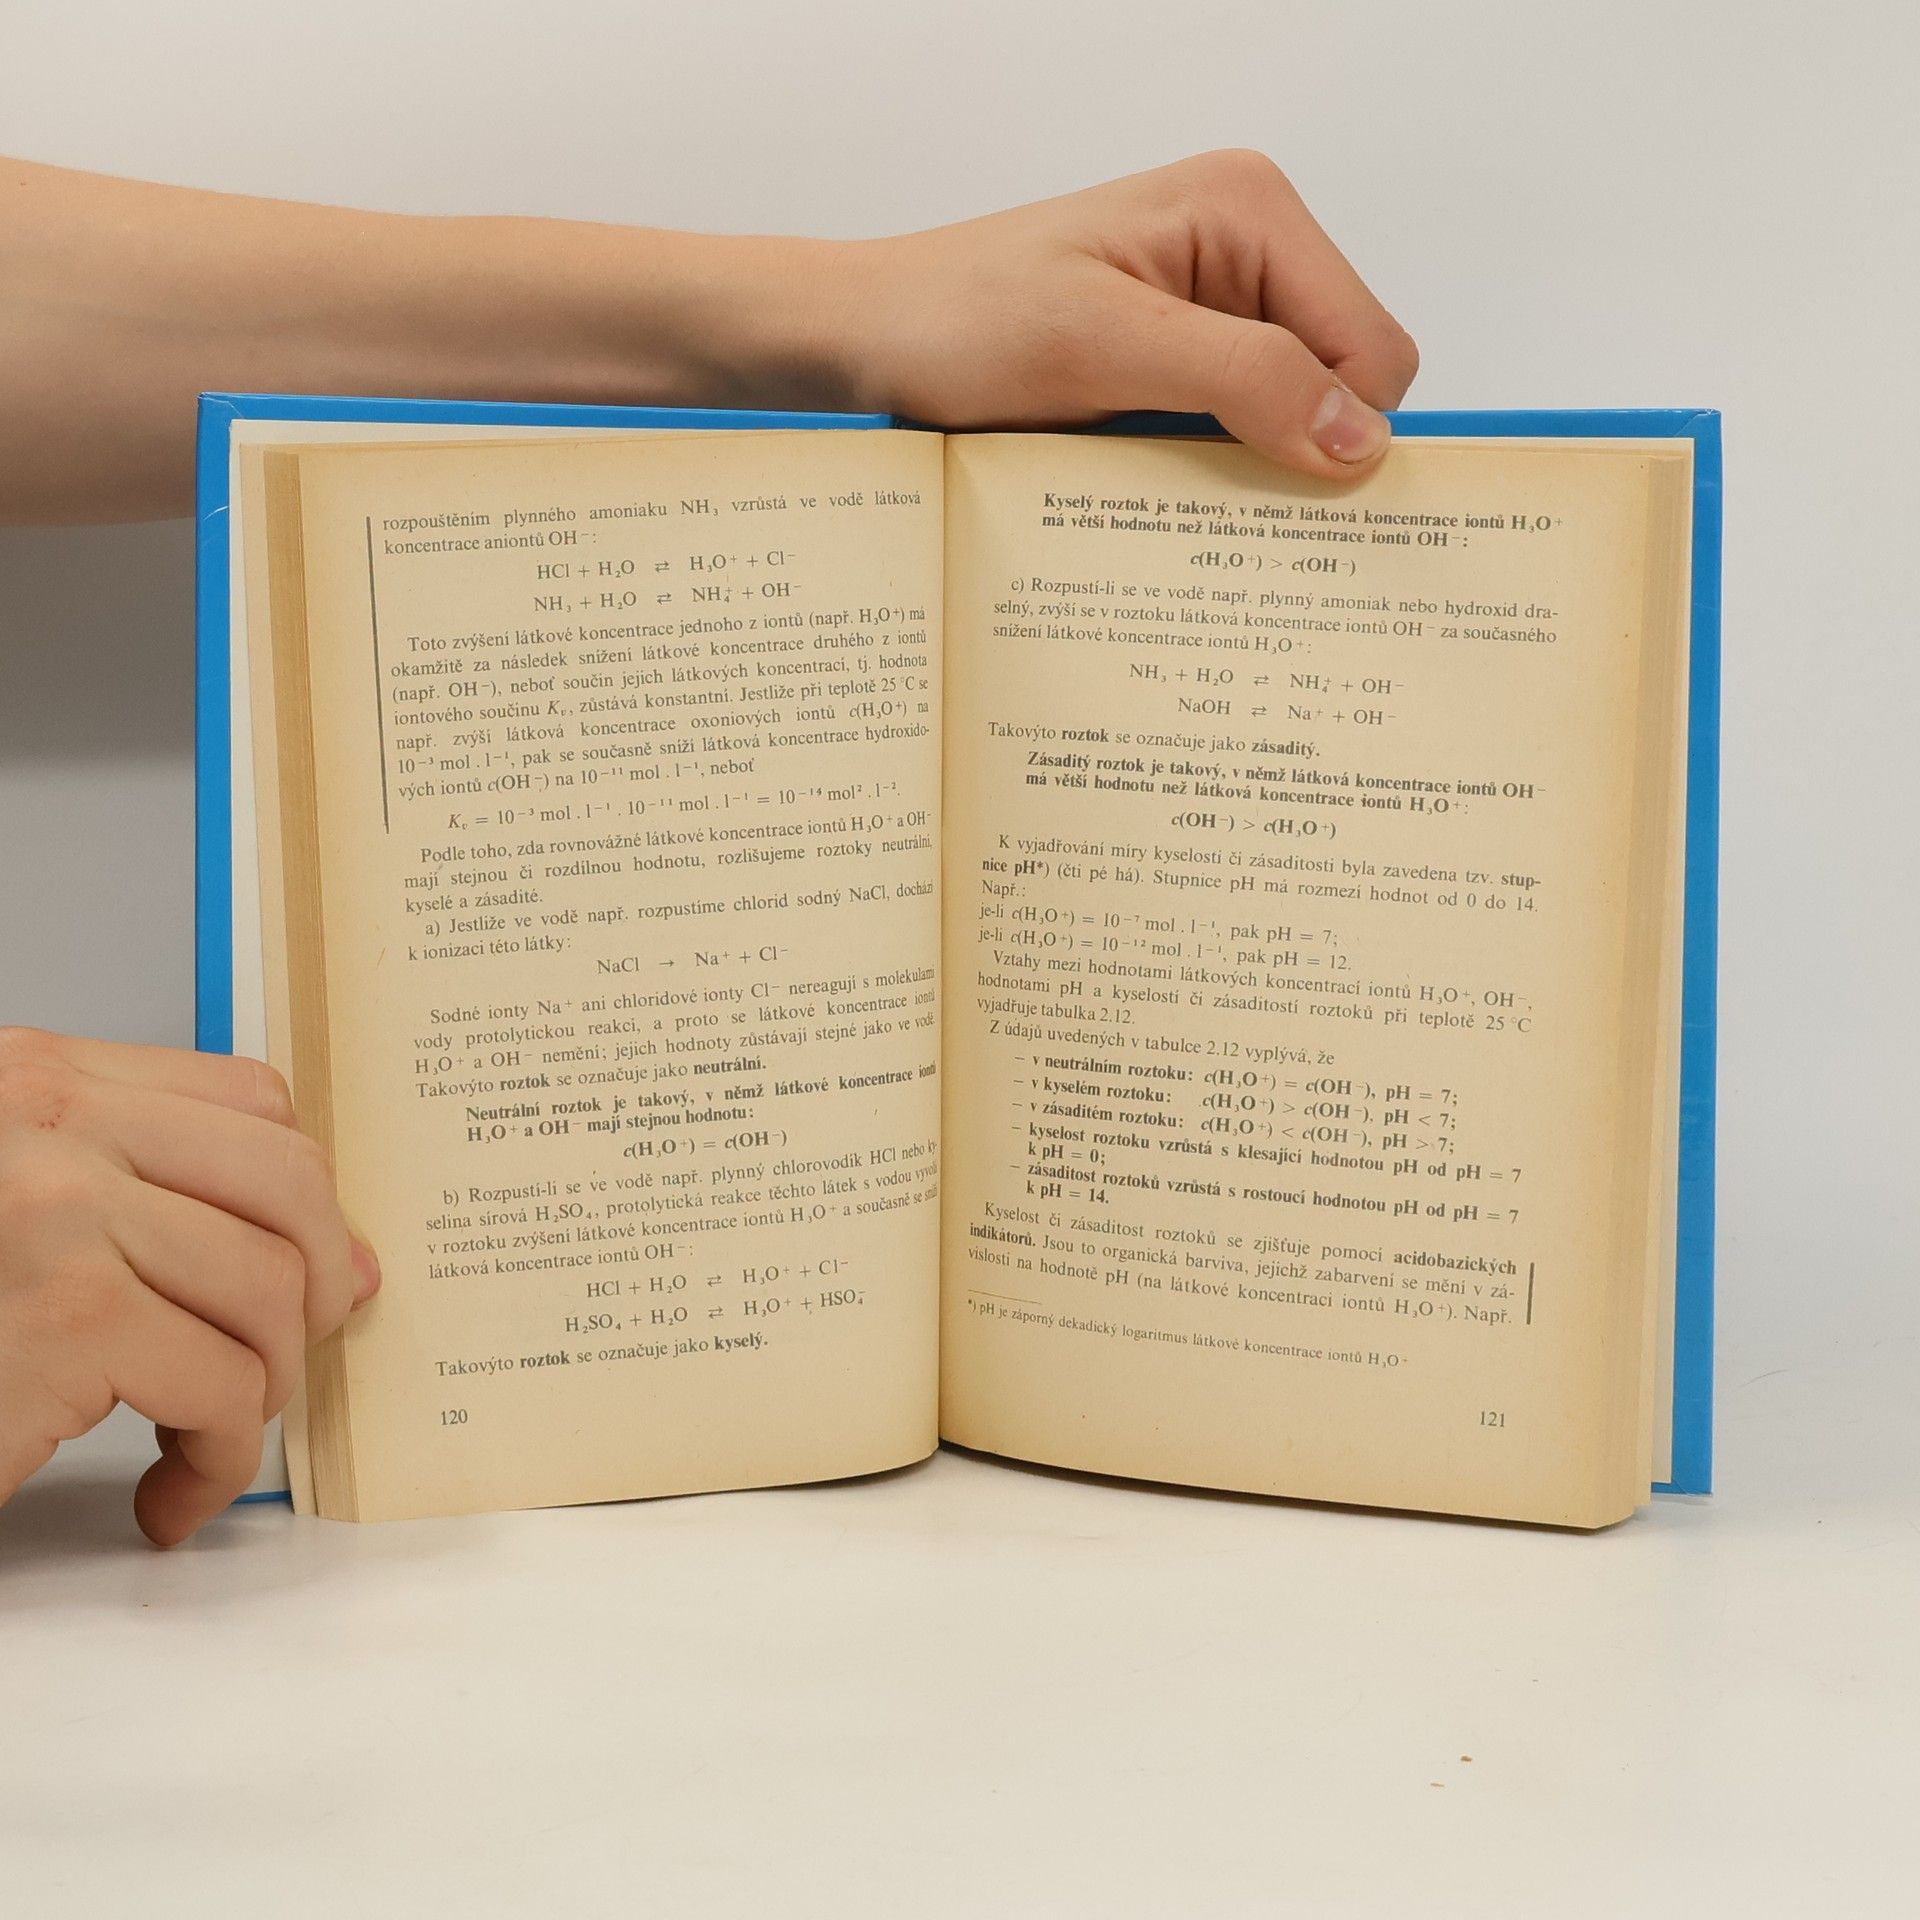 rozpouštěním plynného amoniaku NH₃ vzrůstá ve vodě látková
koncentrace aniontů OH⁻:
HCl + H₂O ⇄ H₃O⁺ + Cl⁻
NH₃ + H₂O ⇄ NH₄⁺ + OH⁻
Toto zvýšení látkové koncentrace jednoho z iontů (např. H₃O⁺) má
okamžitě za následek snížení látkové koncentrace druhého z iontů
(např. OH⁻), neboť součin jejich látkových koncentrací, tj. hodnota
iontového součinu Kᵥ, zůstává konstantní. Jestliže při teplotě 25 °C se
např. zvýší látková koncentrace oxoniových iontů c(H₃O⁺) na
10⁻³ mol . l⁻¹, pak se současně sníží látková koncentrace hydroxido-
vých iontů c(OH⁻) na 10⁻¹¹ mol . l⁻¹, neboť
Kᵥ = 10⁻³ mol . l⁻¹ . 10⁻¹¹ mol . l⁻¹ = 10⁻¹⁴ mol² . l⁻².
Podle toho, zda rovnovážné látkové koncentrace iontů H₃O⁺ a OH⁻
mají stejnou či rozdílnou hodnotu, rozlišujeme roztoky neutrální,
kyselé a zásadité.
a) Jestliže ve vodě např. rozpustíme chlorid sodný NaCl, dochází
k ionizaci této látky:
NaCl → Na⁺ + Cl⁻
Sodné ionty Na⁺ ani chloridové ionty Cl⁻ nereagují s molekulami
vody protolytickou reakcí, a proto se látkové koncentrace iontů
H₃O⁺ a OH⁻ nemění; jejich hodnoty zůstávají stejné jako ve vodě.
Takovýto roztok se označuje jako neutrální.
Neutrální roztok je takový, v němž látkové koncentrace iontů
H₃O⁺ a OH⁻ mají stejnou hodnotu:
c(H₃O⁺) = c(OH⁻)
b) Rozpustí-li se ve vodě např. plynný chlorovodík HCl nebo ky-
selina sírová H₂SO₄, protolytická reakce těchto látek s vodou vyvolá
v roztoku zvýšení látkové koncentrace iontů H₃O⁺ a současně se sníží
látková koncentrace iontů OH⁻:
HCl + H₂O ⇄ H₃O⁺ + Cl⁻
H₂SO₄ + H₂O ⇄ H₃O⁺ + HSO₄⁻
Takovýto roztok se označuje jako kyselý.
120
Kyselý roztok je takový, v němž látková koncentrace iontů H₃O⁺
má větší hodnotu než látková koncentrace iontů OH⁻:
c(H₃O⁺) > c(OH⁻)
c) Rozpustí-li se ve vodě např. plynný amoniak nebo hydroxid dra-
selný, zvýší se v roztoku látková koncentrace iontů OH⁻ za současného
snížení látkové koncentrace iontů H₃O⁺:
NH₃ + H₂O ⇄ NH₄⁺ + OH⁻
NaOH ⇄ Na⁺ + OH⁻
Takovýto roztok se označuje jako zásaditý.
Zásaditý roztok je takový, v němž látková koncentrace iontů OH⁻
má větší hodnotu než látková koncentrace iontů H₃O⁺:
c(OH⁻) > c(H₃O⁺)
K vyjadřování míry kyselosti či zásaditosti byla zavedena tzv. stup-
nice pH*) (čti pé há). Stupnice pH má rozmezí hodnot od 0 do 14.
Např.:
je-li c(H₃O⁺) = 10⁻⁷ mol . l⁻¹, pak pH = 7;
je-li c(H₃O⁺) = 10⁻¹² mol . l⁻¹, pak pH = 12.
Vztahy mezi hodnotami látkových koncentrací iontů H₃O⁺, OH⁻,
hodnotami pH a kyselostí či zásaditostí roztoků při teplotě 25 °C
vyjadřuje tabulka 2.12.
Z údajů uvedených v tabulce 2.12 vyplývá, že
– v neutrálním roztoku: c(H₃O⁺) = c(OH⁻), pH = 7;
– v kyselém roztoku: c(H₃O⁺) > c(OH⁻), pH < 7;
– v zásaditém roztoku: c(H₃O⁺) < c(OH⁻), pH > 7;
– kyselost roztoku vzrůstá s klesající hodnotou pH od pH = 7
k pH = 0;
– zásaditost roztoků vzrůstá s rostoucí hodnotou pH od pH = 7
k pH = 14.
Kyselost či zásaditost roztoků se zjišťuje pomocí acidobazických
indikátorů. Jsou to organická barviva, jejichž zabarvení se mění v zá-
vislosti na hodnotě pH (na látkové koncentraci iontů H₃O⁺). Např.
*) pH je záporný dekadický logaritmus látkové koncentrace iontů H₃O⁺
121